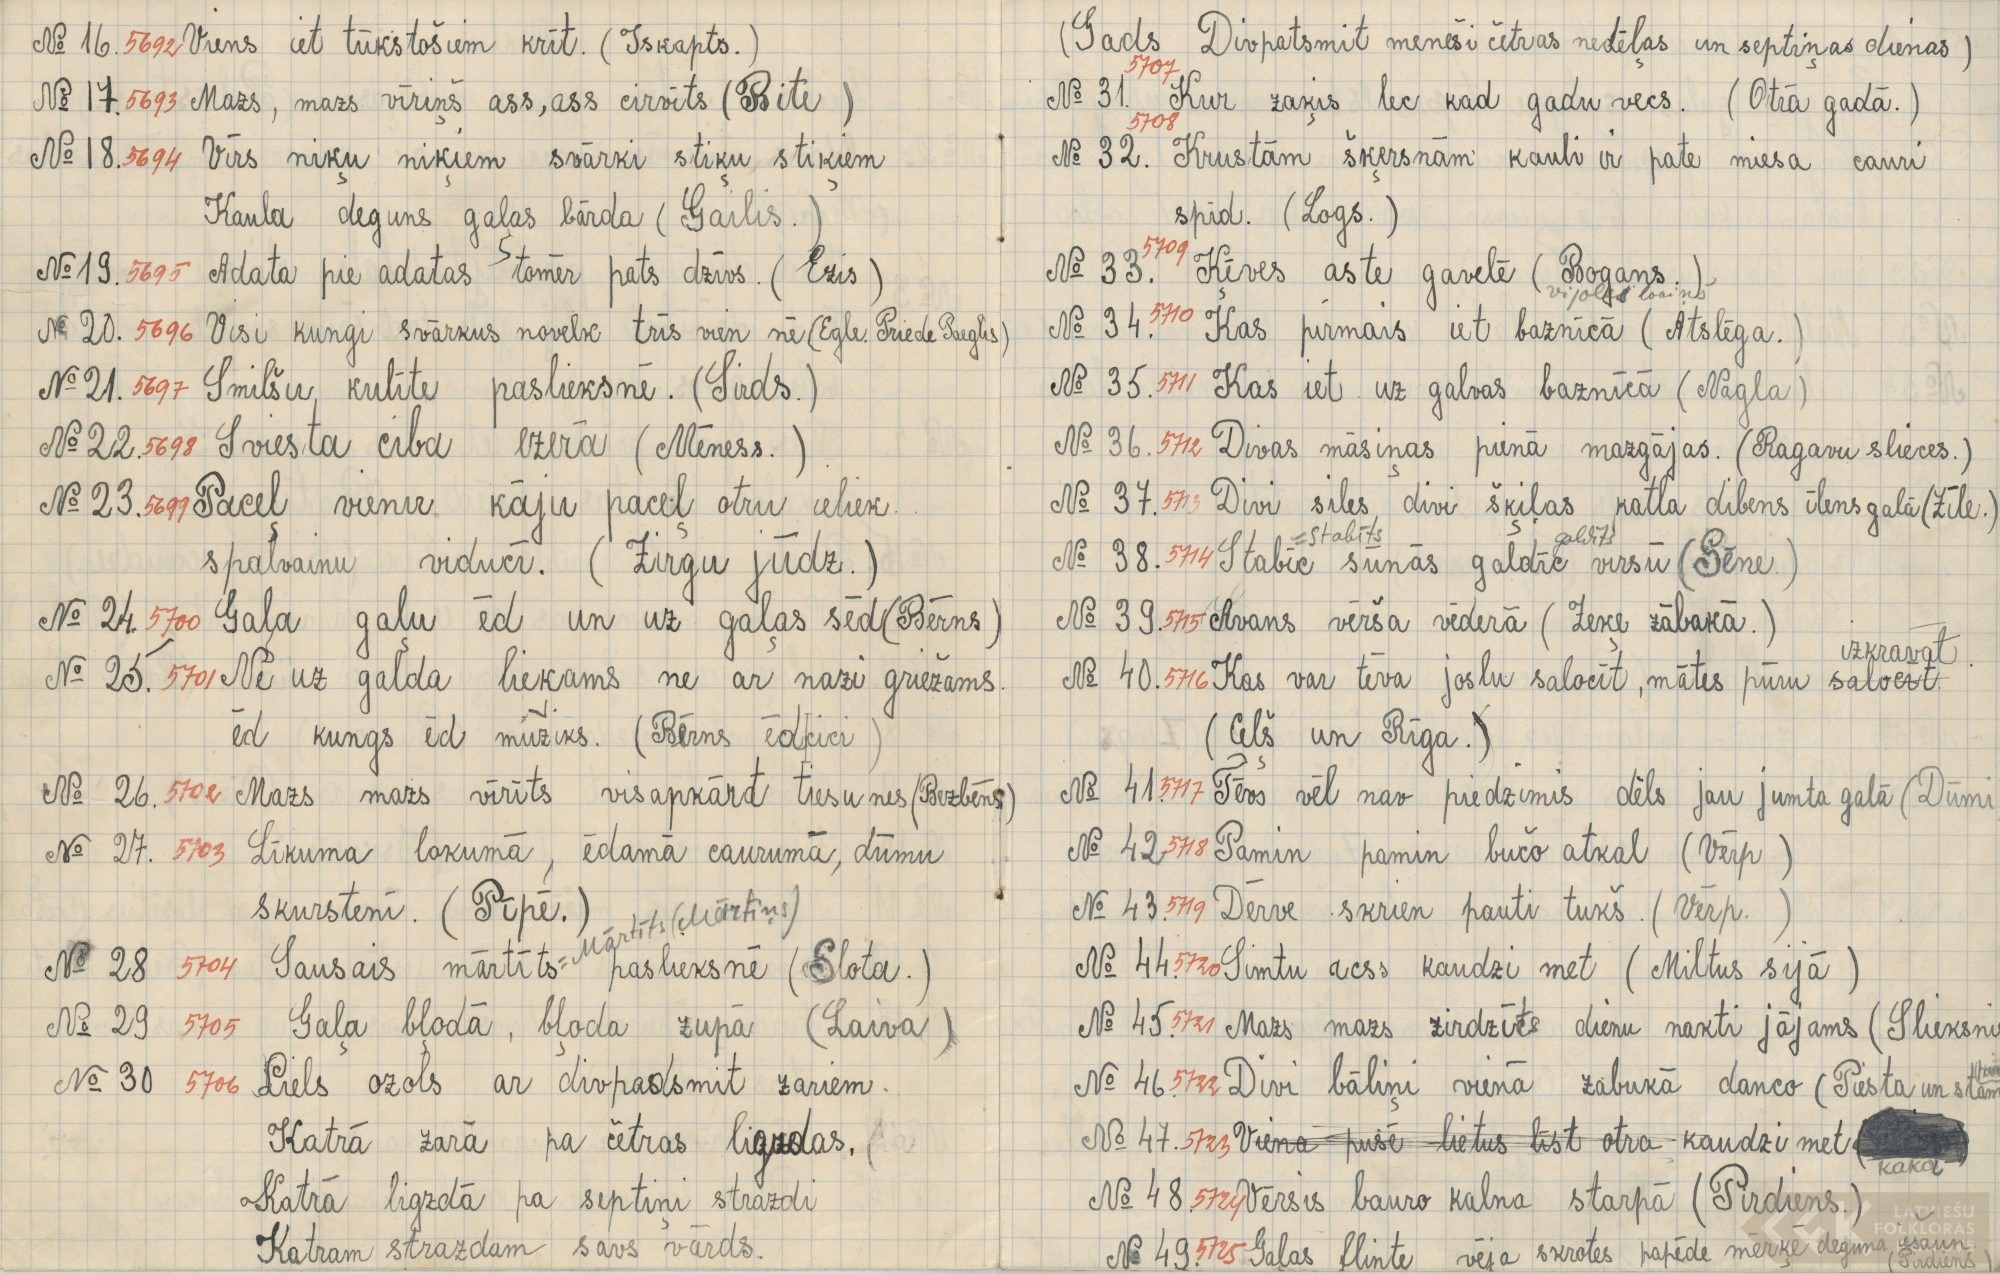 № 16. 5692 Viens iet tūkstošiem krīt. (Iskapts.)
№ 17. 5693 Mazs, mazs vīriņš ass, ass cirvīts (Bite)
№ 18. 5694 Vīrs niķu niķiem svārki stiķu stiķiem
Kaula deguns gaļas bārda (Gailis.)
№ 19. 5695 Adata pie adatas tomēr pats dzīvs. (Ezis)
№ 20. 5696 Visi kungi svārkus novelk trīs vien nē (Egle. Priede Paeglis)
№ 21. 5697 Smilšu kulīte paslieksnē. (Sirds.)
№ 22. 5698 Sviesta ciba ezerā (Mēness.)
№ 23. 5699 Paceļ vienu kāju paceļ otru ieliek
spalvainu viducī. (Zirgu jūdz.)
№ 24. 5700 Gaļa gaļu ēd un uz gaļas sēd (Bērns)
№ 25. 5701 Ne uz galda liekams ne ar nazi griežams.
ēd kungs ēd mužiks. (Bērns ēd cici)
№ 26. 5702 Mazs mazs vīrīts visapkārt tiesu nes (Bezbēns)
№ 27. 5703 Līkuma lokumā, ēdamā caurumā, dūmu
skursteni. (Pīpē.)
№ 28 5704 Sausais mārtīts = Mārtīts (Mārtiņs) paslieksnē (Slota.)
№ 29 5705 Gaļa bļodā, bļoda zupā (Laiva)
№ 30 5706 Liels ozols ar divpadsmit zariem.
Katrā zarā pa četras ligzdas.
Katrā ligzdā pa septiņi strazdi
Katram strazdam savs vārds.
(Gads Divpatsmit menēši četras nedēļas un septiņas dienas)
№ 31. 5707 Kur zaķis lec kad gadu vecs. (Otrā gadā.)
№ 32. 5708 Krustām šķersnām kauli ir pate miesa cauri
spīd. (Logs.)
№ 33. 5709 Ķēves aste gavelē (Bogans.)
vijoles lociņš
№ 34. 5710 Kas pirmais iet baznīcā (Atslēga.)
№ 35. 5711 Kas iet uz galvas baznīcā (Nagla)
№ 36. 5712 Divas māsiņas pienā mazgājas. (Ragavu slieces.)
№ 37. 5713 Divi siles, divi šķiļas katla dibens īlens galā (Zīle.)
=Stabīts galdīts
№ 38. 5714 Stabīc sūnās galdīc virsū (Sēne.)
№ 39. 5715 Avans vērša vēderā (Zeķe zābakā.)
izkravāt.
№ 40. 5716 Kas var tēva joslu salocīt, mātes pūru salocīt
(Ceļš un Rīga.)
№ 41. 5717 Tēvs vēl nav piedzimis dēls jau jumta galā (Dūmi
№ 42. 5718 Pamin pamin bučo atkal (Vērp)
№ 43. 5719 Dērve skrien pauti tukš. (Vērp.)
№ 44. 5720 Simtu acss kaudzi met (Miltus sijā)
№ 45. 5721 Mazs mazs zirdzīts dienu nakti jājams (Slieksnis
№ 46. 5722 Divi bāliņi vienā zābukā danco (Piesta un stam
№ 47. 5723 Vienā pusē lietus līst otra kaudzi met
kakā
№ 48. 5724 Vērsis bauro kalna starpā (Pirdiens.)
№ 49. 5725 Gaļas flinte vēja skrotes papēde mērķē degunā išaun.
(Pirdiens)
LATVIEŠU
FOLKLORAS